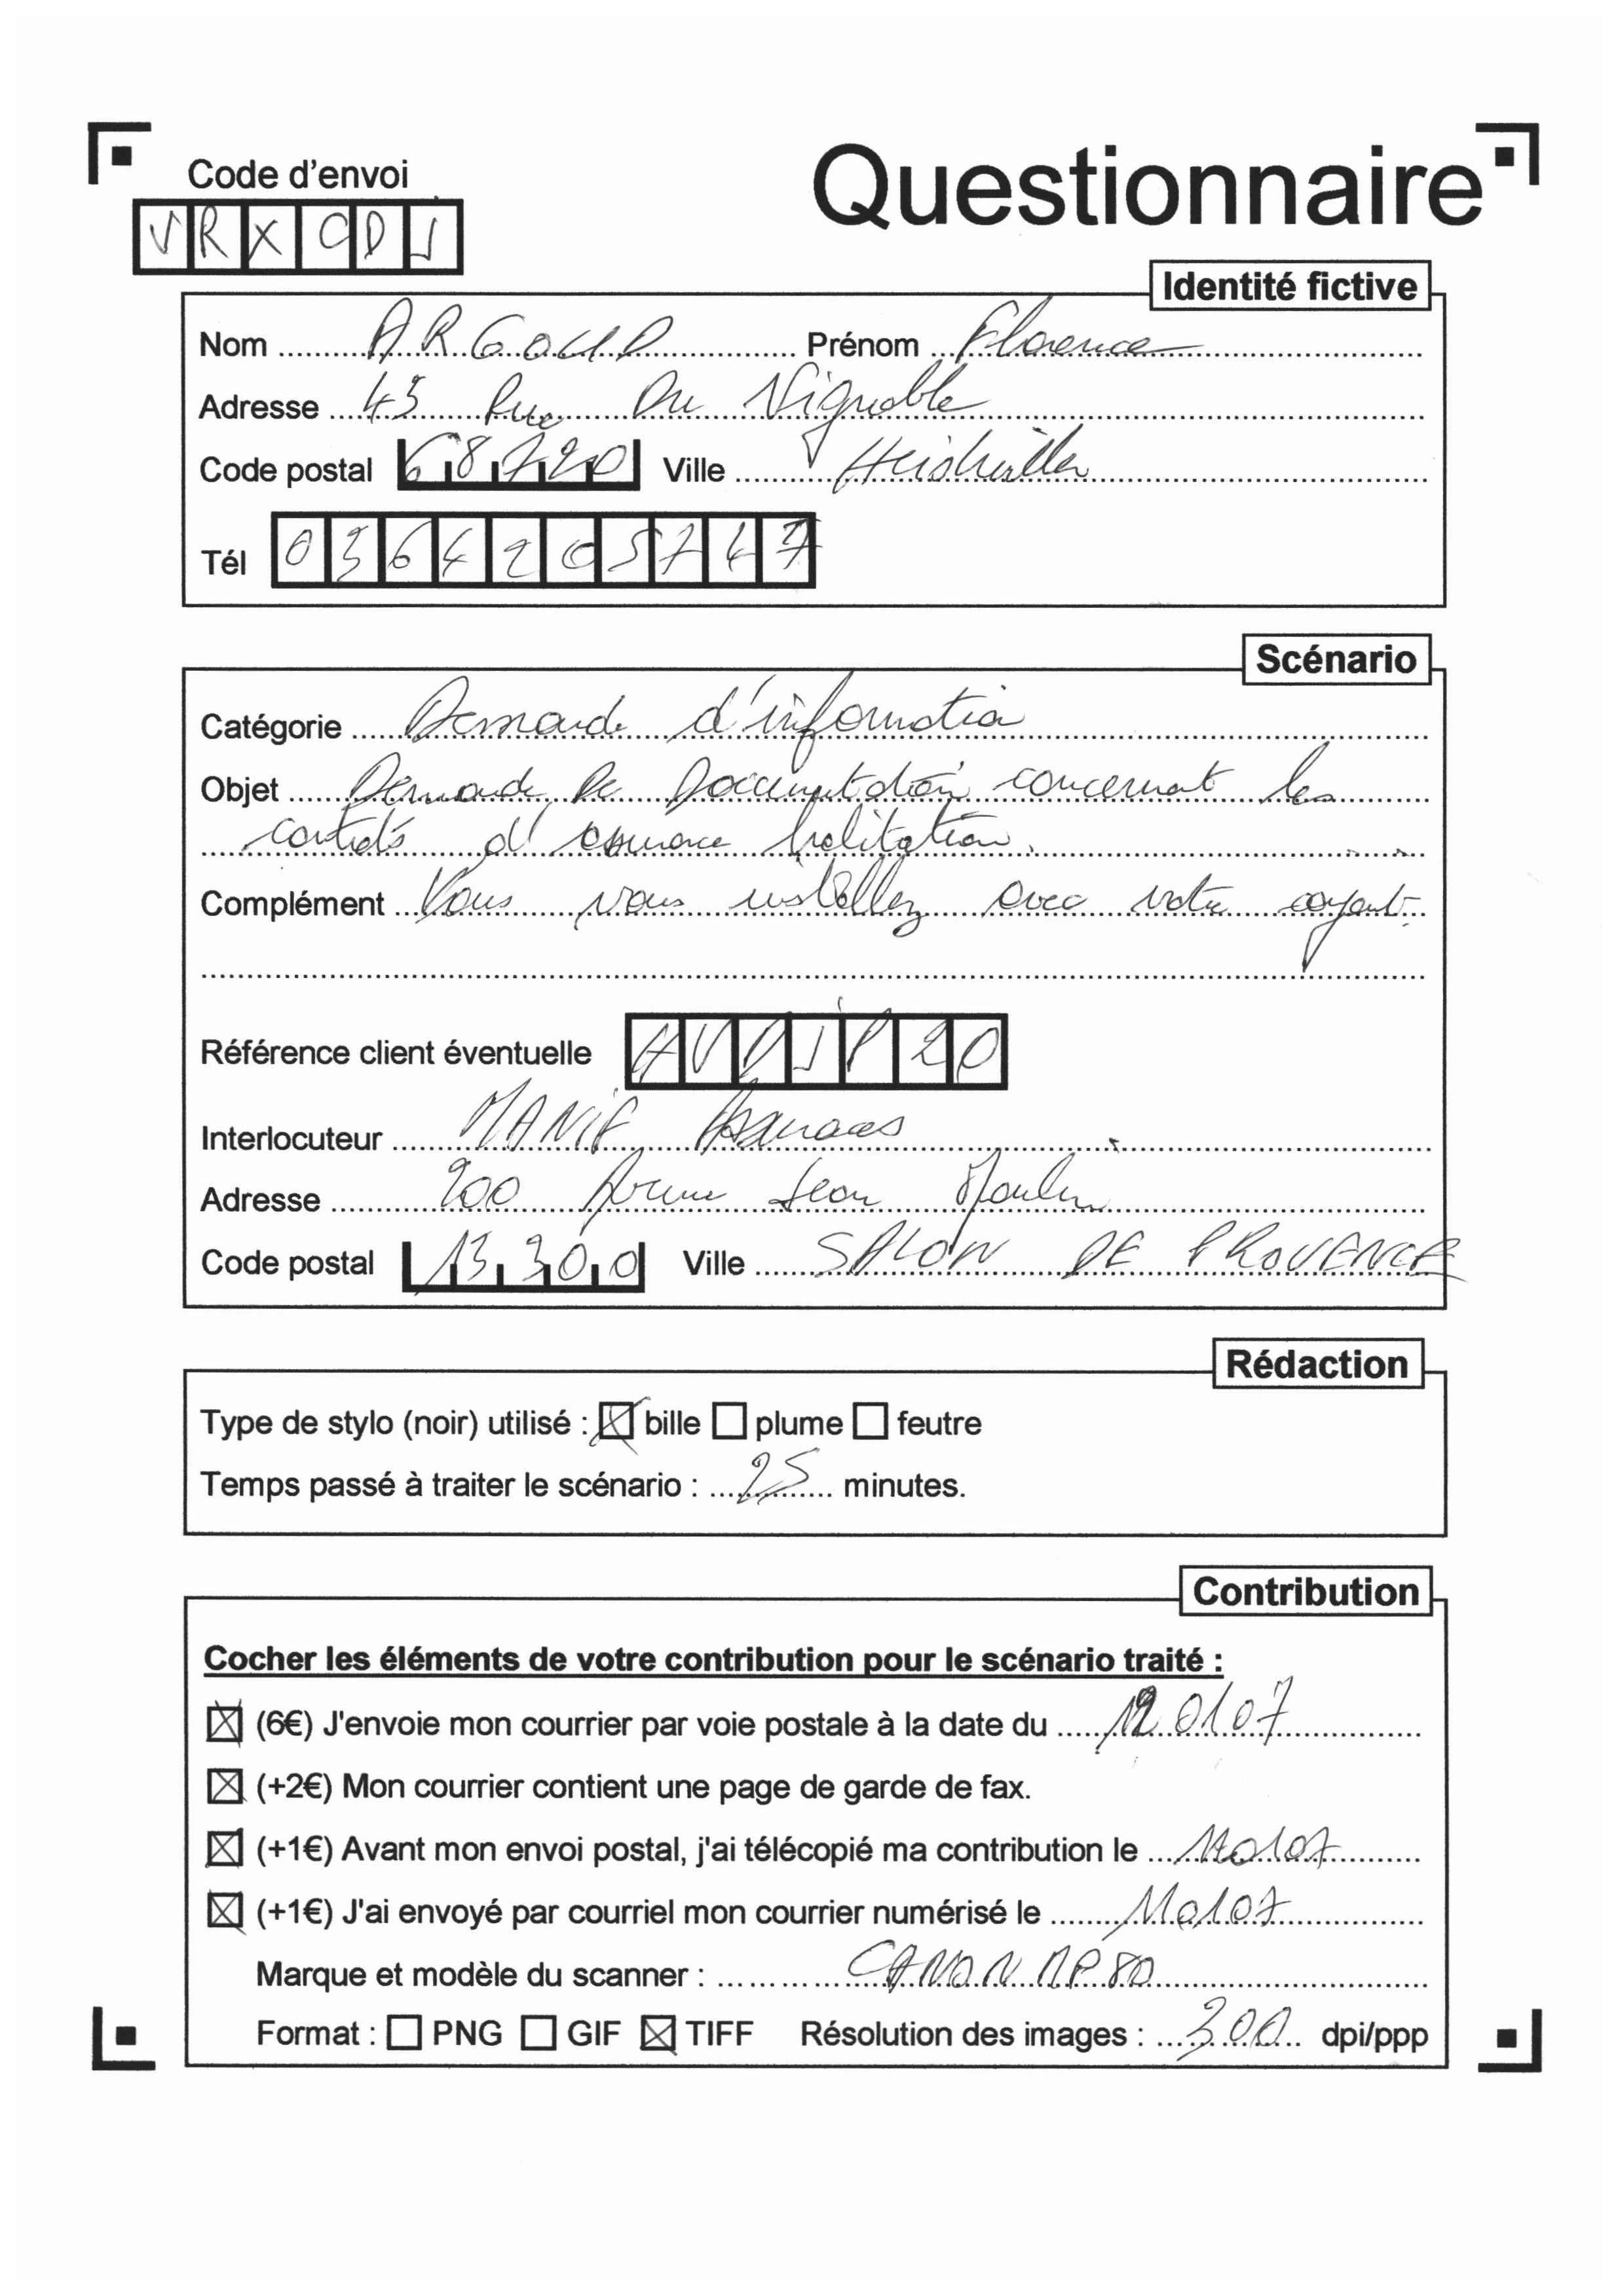 Code d'envoi
Questionnaire
VRXCDJ
Identité fictive
Nom ARGOUD Prénom Florence
Adresse 43 Rue Du Vignoble
Code postal 68720 Ville
Tél 0364205747
Scénario
Catégorie Demande d'information
Objet Demande De Documentation concernant les
contrats d'assurance habitation.
Complément Vous vous installez avec votre conjoint.
Référence client éventuelle 20
Interlocuteur Assurances
Adresse 200 Avenue Jean Moulin
Code postal 13300 Ville SALON DE PROVENCE
Rédaction
Type de stylo (noir) utilisé : bille plume feutre
Temps passé à traiter le scénario : 25 minutes.
Contribution
Cocher les éléments de votre contribution pour le scénario traité :
(6€) J'envoie mon courrier par voie postale à la date du
(+2€) Mon courrier contient une page de garde de fax.
(+1€) Avant mon envoi postal, j'ai télécopié ma contribution le
(+1€) J'ai envoyé par courriel mon courrier numérisé le
Marque et modèle du scanner : CANON
Format : PNG GIF TIFF Résolution des images : 300 dpi/ppp